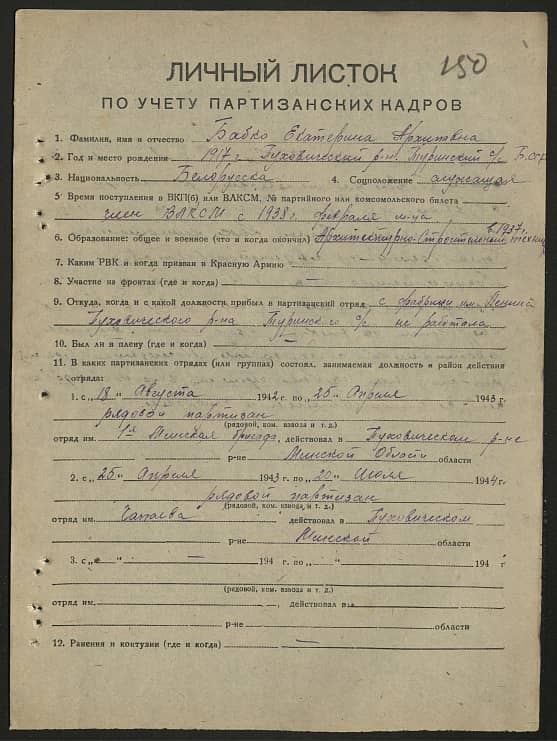 150
ЛИЧНЫЙ ЛИСТОК
ПО УЧЕТУ ПАРТИЗАНСКИХ КАДРОВ
1. Фамилия, имя и отчество Бабко Екатерина
2. Год и место рождения 1917 г. Пуховический р-н Туринский с/с
3. Национальность Белорусска 4. Соцположение служащая
5. Время поступления в ВКП(б) или ВЛКСМ, № партийного или комсомольского билета
член ВЛКСМ с 1938 г. февраля м-ца
в 1937г.
6. Образование: общее и военное (что и когда окончил) Архитектурно-Строительный техник
7. Каким РВК и когда призван в Красную Армию —
8. Участие на фронтах (где и когда) —
9. Откуда, когда и с какой должности прибыл в партизанский отряд с фабрики им. Ленина
Пуховического р-на Туринского с/с не работала
10. Был ли в плену (где и когда) —
11. В каких партизанских отрядах (или группах) состоял, занимаемая должность и район действия
отряда:
1. с „18 “ Августа 1942 г. по „25“ Апреля 1943 г.
рядовой партизан
(рядовой, ком. взвода и т. д.)
отряд им. 1-я Минская бригада, действовал в Пуховическом р-не
р-не Минской Области области
2. с „25“ Апреля 1943 г. по „20“ Июля 1944 г.
рядовой партизан
(рядовой, ком. взвода и т. д.)
отряд им. Чапаева действовал в Пуховическом
р-не Минской области
3. с „ “ — 194 г. по „ “ 194 г.
(рядовой, ком. взвода и т. д.)
отряд им. , действовал в
р-не области
12. Ранения и контузии (где и когда) —